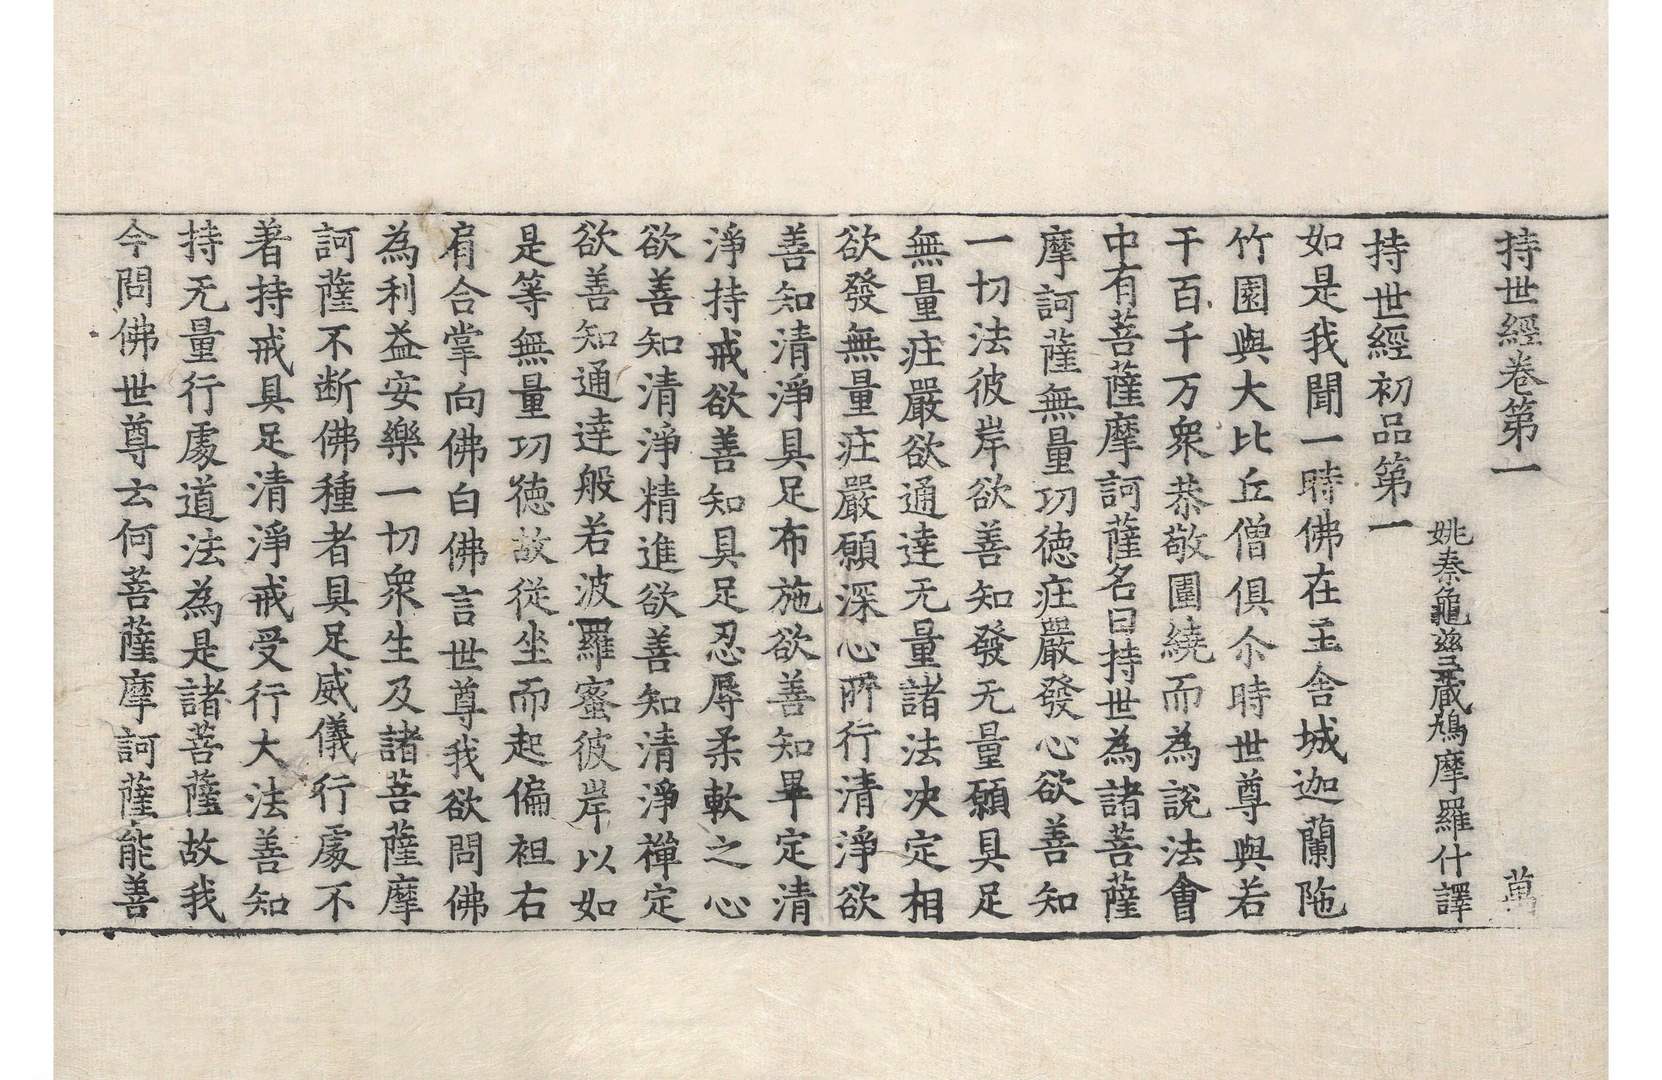 持世經卷第一 萬
姚秦龜茲三藏鳩摩羅什譯
持世經初品第一
如是我聞一時佛在王舍城迦蘭陁
竹園與大比丘僧俱尒時世尊與若
干百千万衆恭敬圍繞而為說法會
中有菩薩摩訶薩名曰持世為諸菩薩
摩訶薩無量功德庄嚴發心欲善知
一切法彼岸欲善知發无量願具足
無量庄嚴欲通達无量諸法决定相
欲發無量庄嚴願深心所行清淨欲
善知清淨具足布施欲善知畢定清
淨持戒欲善知具足忍辱柔軟之心
欲善知清淨精進欲善知清淨禪定
欲善知通達般若波羅蜜彼岸以如
是等無量功德故從坐而起偏袒右
肩合掌向佛白佛言世尊我欲問佛
為利益安樂一切衆生及諸菩薩摩
訶薩不断佛種者具足威儀行處不
著持戒具足清淨戒受行大法善知
持无量行處道法為是諸菩薩故我
今問佛世尊云何菩薩摩訶薩能善